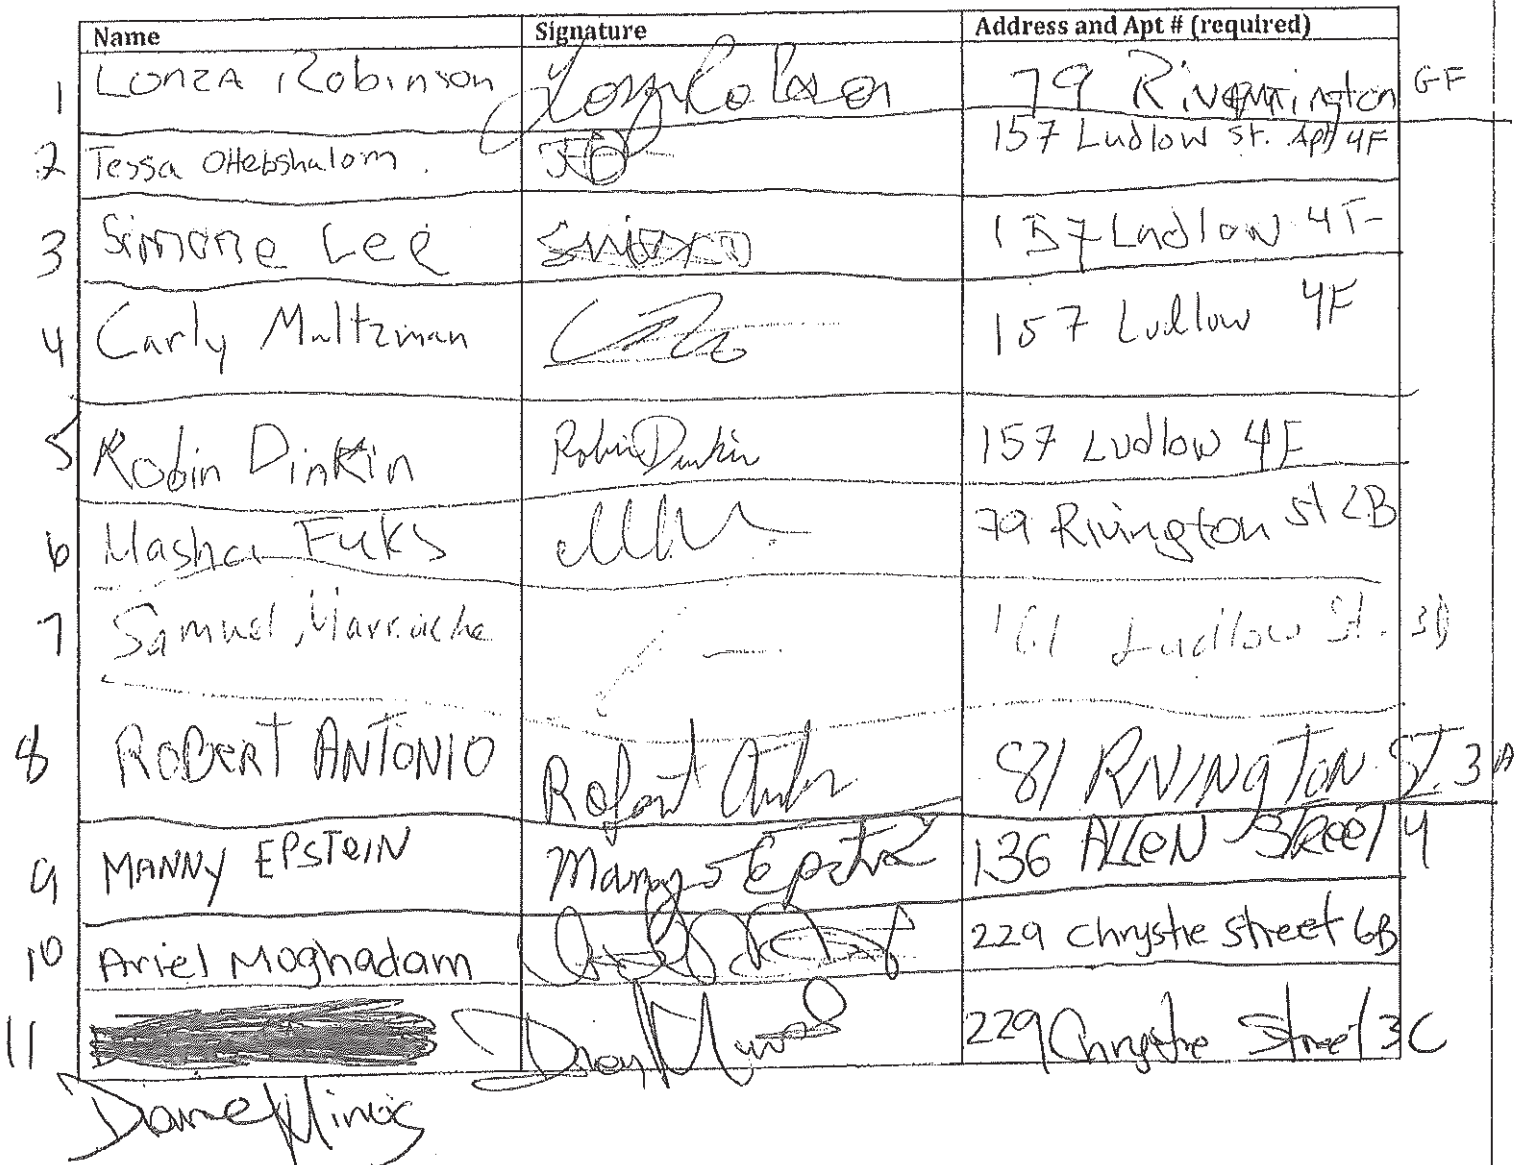 Name Signature Address and Apt # (required)
1 Lonza Robinson 79 Rivington GF
2 Tessa Ottebshalom. 157 Ludlow St. Apt 4F
3 Simone Lee 157 Ludlow 4F
4 Carly Maltzman 157 Ludlow 4F
5 Robin Dinkin Robin Dinkin 157 Ludlow 4F
6 Masha Fuks 79 Rivington St 2B
7 Samuel 161 Ludlow St. 3D
8 ROBERT ANTONIO Robert 81 RIVINGTON ST. 3A
9 MANNY EPSTEIN Manny Epstein 136 ALLEN STREET 4
10 Ariel Moghadam 229 Chrystie street 6B
11 229 Chrystie Street 3C